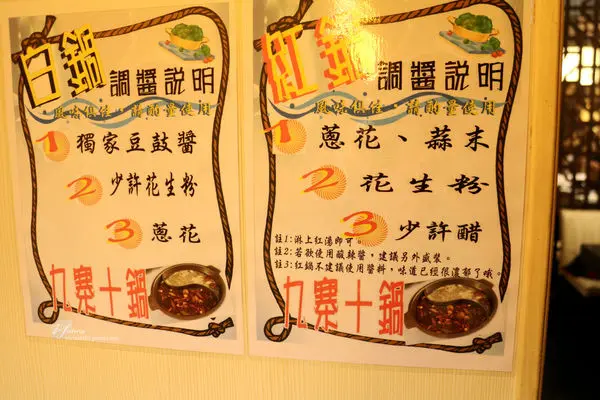 白鍋
調醬說明
風味俱佳、請酌量使用
1 獨家豆鼓醬
2 少許花生粉
3 蔥花
九寨十鍋
紅鍋
調醬說明
風味俱佳、請酌量使用
1 蔥花、蒜末
2 花生粉
3 少許醋
註1:淋上紅湯即可。
註2:若欲使用酸辣醬,建議另外盛裝。
註3:紅鍋不建議使用醬料,味道已經很濃郁了哦。
九寨十鍋